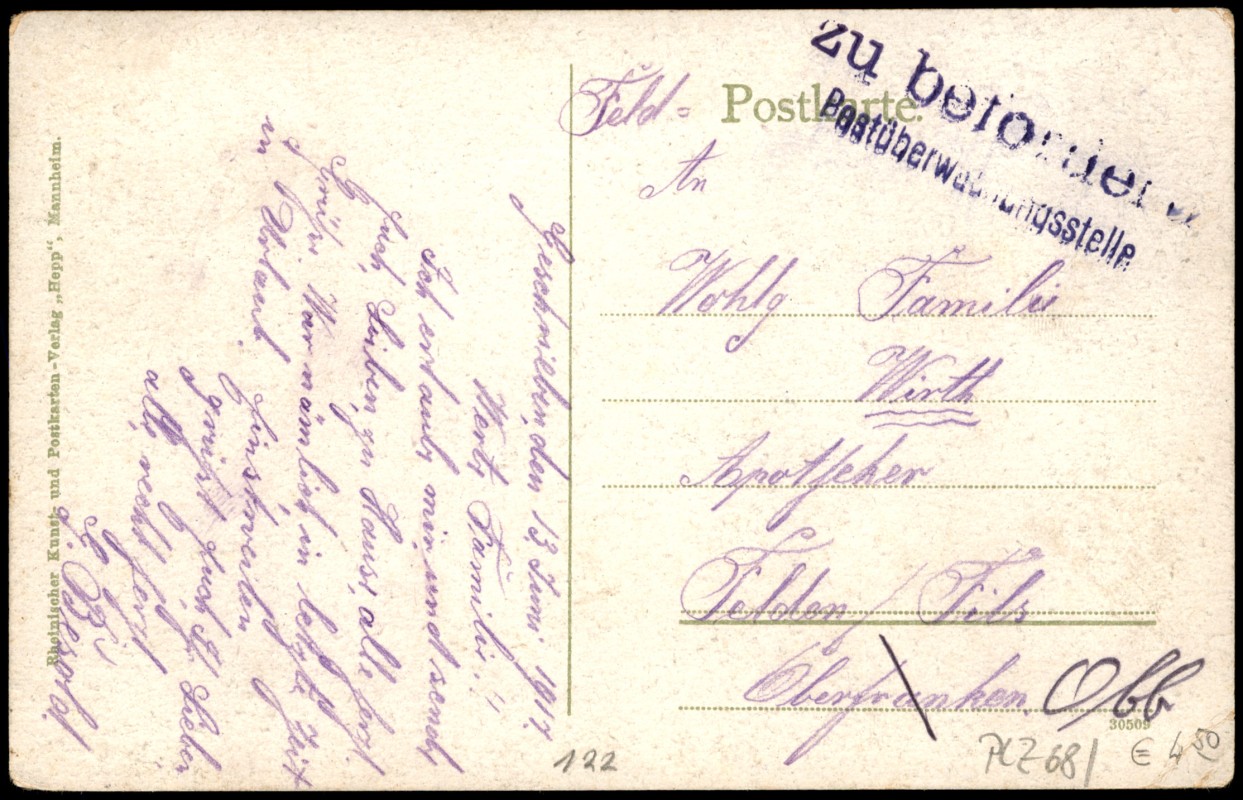 Feld-
Postkarte.
zu befördern
Postüberwachungsstelle
An
Wohlg Familie
Wirth
Apotheker
Velden / Vils
Oberfranken. Obb
30509
PLZ 68 / € 4 50
122
Geschrieben, den 13. Juni 1917.
Werte Familie!!
Ich erlaube mir und sende
Euch Lieben zu Hause alle herzl
Grüße. War nämlich in letzter Zeit
in Urlaub.
Einstweilen
grüßt Euch Ihr Lieben
alle recht herzl
L. B.
Rheinischer Kunst- und Postkarten-Verlag „Hepp“, Mannheim.